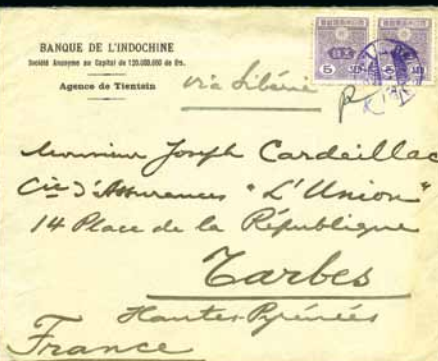 BANQUE DE L'INDOCHINE
Société Anonyme au Capital de 120.000.000 de frs.
Agence de Tientsin
via Sibérie
5 5
Monsieur Joseph Cardeillac
Cie d'Assurances "L'Union"
14 Place de la République
Tarbes
Hautes-Pyrénées
France